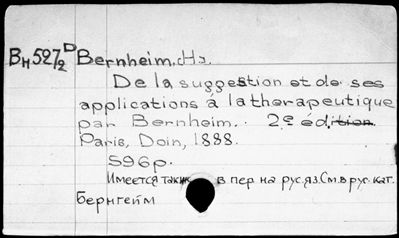 Вн527/2 D Bernheim, H.
De la suggestion et de ses
applications à la therapeutique
par Bernheim. 2e édition
Paris, Doin, 1888.
596p.
Имеется также в пер на рус.яз.См.в рус. кат.
Бернгейм